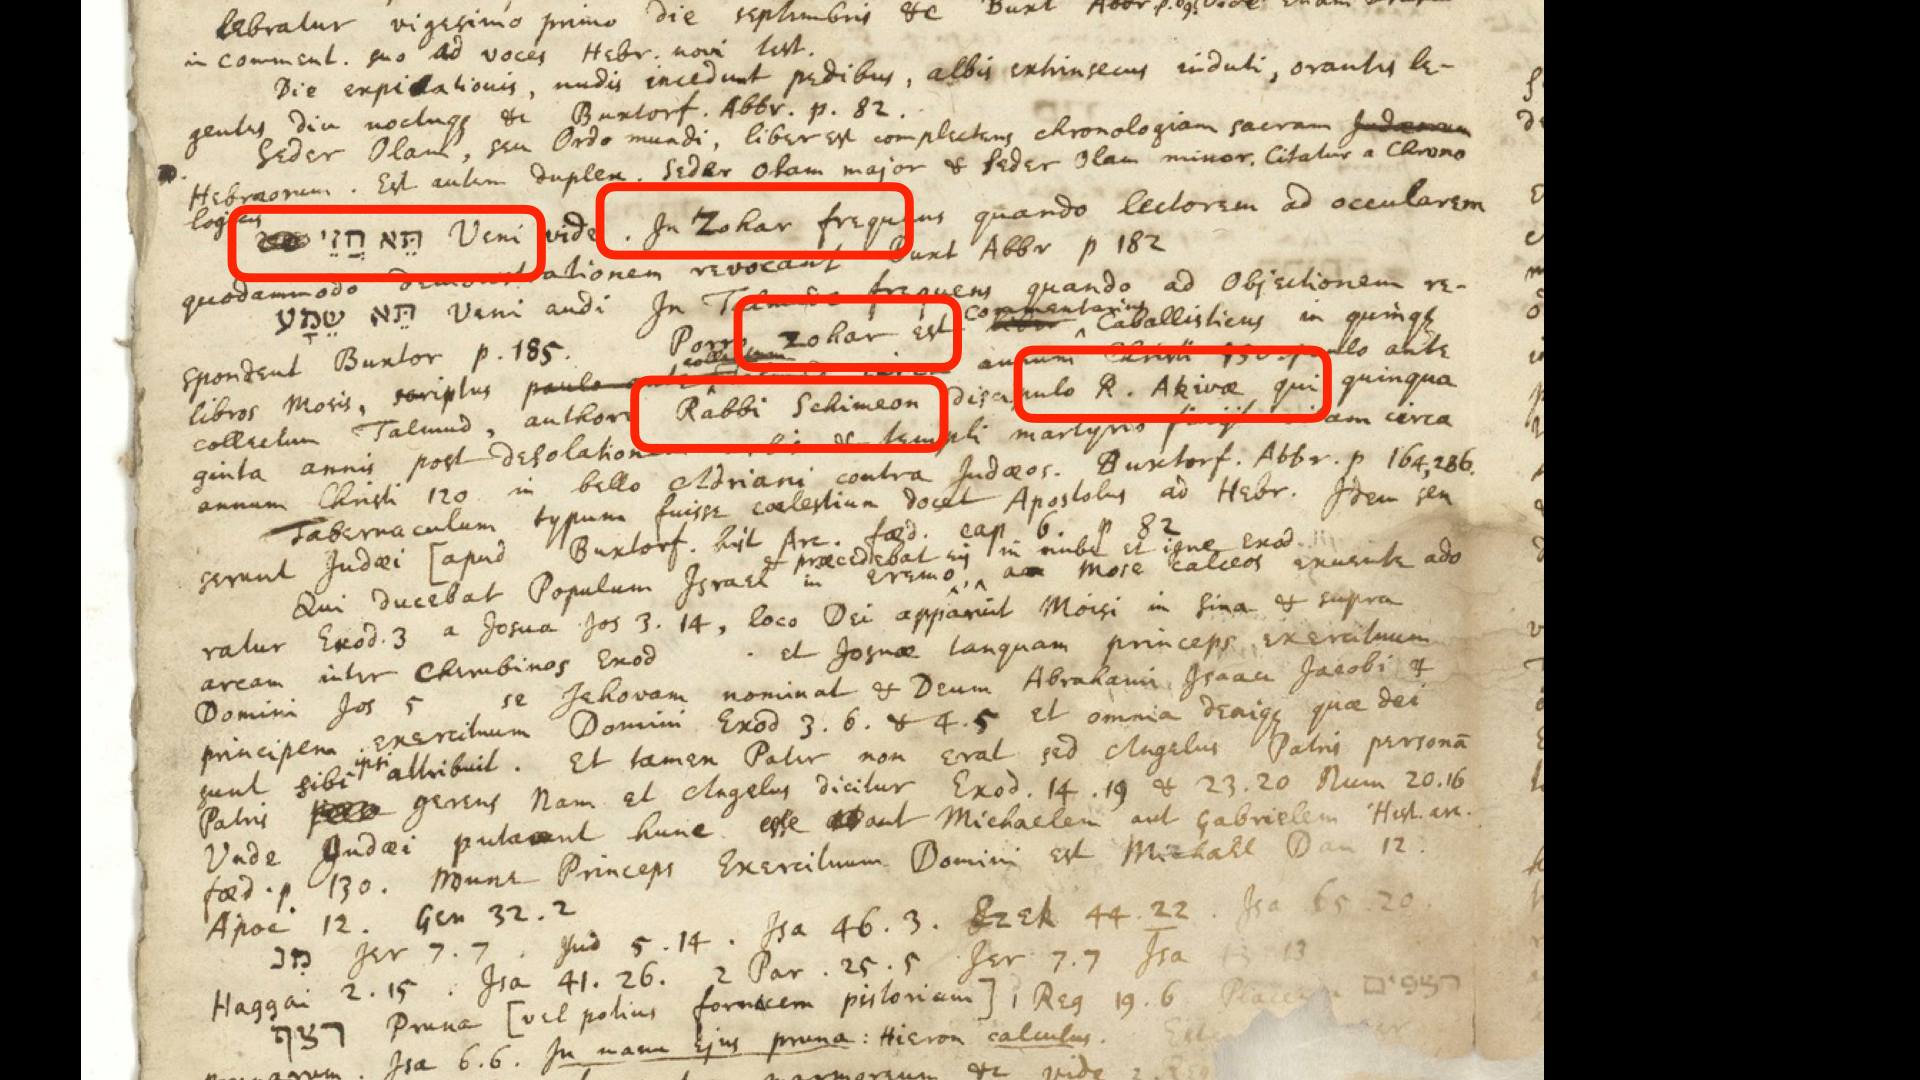 lebratur vigesimo primo die septembris &c Buxt Abbr. p.
in comment. suo ad voces Hebr. novi Test.
Die expiationis, nudis incedunt pedibus, albis extrinsecus induti, orantes le-
gentes diu noctuqꝫ &c Buxtorf. Abbr. p. 82.
Seder Olam, seu Ordo mundi, liber est complectens chronologiam sacram Judæorum
Hebræorum. Est autem duplex. Seder Olam major & Seder Olam minor. Citatur a Chrono
logicis
תָּא חֲזֵי Veni vide. In Zohar frequens quando lectorem ad occularem
quodammodo demonstrationem revocant Buxt Abbr p 182
תָּא שְׁמַע Veni audi In Talmude frequens quando ad Objectionem re-
spondent Buxtor p. 185. Porro Zohar est liber commentarius Caballisticus in quinqꝫ
libros Mosis, scriptus paulo ante collectum annum Christi paulo ante
collectum Talmud, authore Rabbi Schimeon discipulo R. Akivæ qui quinqua
ginta annis post desolationem urbis & templi martyrio finijt vitam circa
annum Christi 120 in bello Adriani contra Judæos. Buxtorf. Abbr. p 164, 286.
Tabernaculum typum fuisse cœlestium docet Apostolus ad Hebr. Idem sen
serunt Judæi [apud Buxtorf. hist Arc. fœd. cap 6. p 82
& præcedebat eis in nube et igne Exod
Qui ducebat Populum Israel in eremo, a Mose calceos exuente ado
ratur Exod. 3 a Josua Jos 3. 14, loco Dei apparuit Moisi in Sina & supra
arcam inter Cherubinos Exod . et Josuæ tanquam princeps exercituum
Domini Jos 5 se Jehovam nominat & Deum Abrahami Isaaci Jacobi &
principem exercituum Domini Exod 3. 6. & 4. 5 et omnia deniqꝫ quæ dei
sunt sibi ipsi attribuit. Et tamen Pater non erat sed Angelus Patris personā
Patris gerens Nam et Angelus dicitur Exod. 14. 19 & 23. 20 Num 20. 16
Unde Judæi putarunt hunc esse aut Michaelem aut Gabrielem Hist. arc.
fœd. p. 130. Princeps Exercituum Domini est Michael Dan 12.
Apoc 12. Gen 32. 2
Jer 7. 7 Jud 5. 14. Isa 46. 3. Ezek 44. 22. Isa 65. 20.
Haggai 2. 15. Isa 41. 26. 2 Par. 25. 5 Jer 7. 7 Isa 13
רצף Pruna [vel potius fornacem pistoriam] 1 Reg 19. 6
Isa 6. 6. In manu ejus pruna: Hieron calculus.
marmoreum &c vide 2. Reg